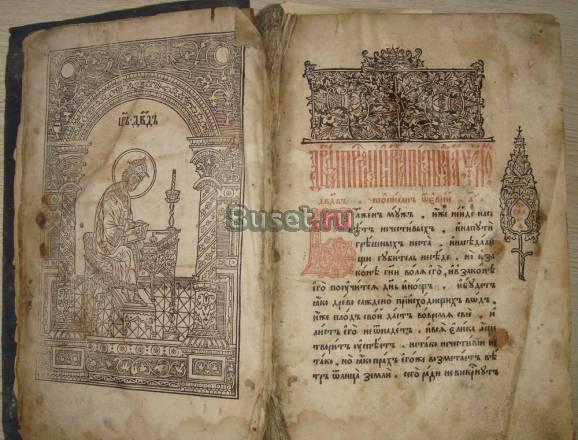 црь двдъ
Suset.ru
двдвъ
Блженъ мужъ иже неиде насо
вѣтъ нечестивыхъ инапути
грѣшныхъ неста инасѣдали
щи губитель несѣде но взa
конѣ гни воля его, ивзаконѣ
его поучится днь инощь ибудетъ
ꙗко древо саждено приисходищихъ водъ
иже плодъ свой дастъ вовремя свое и
листъ его неѿпадетъ ився елика аще
творитъ успѣетъ нетако нечестивїи не
тако, но ꙗко прахъ егоже возметаетъ вѣ
тръ ѿлица земли сего ради невоскрнутъ